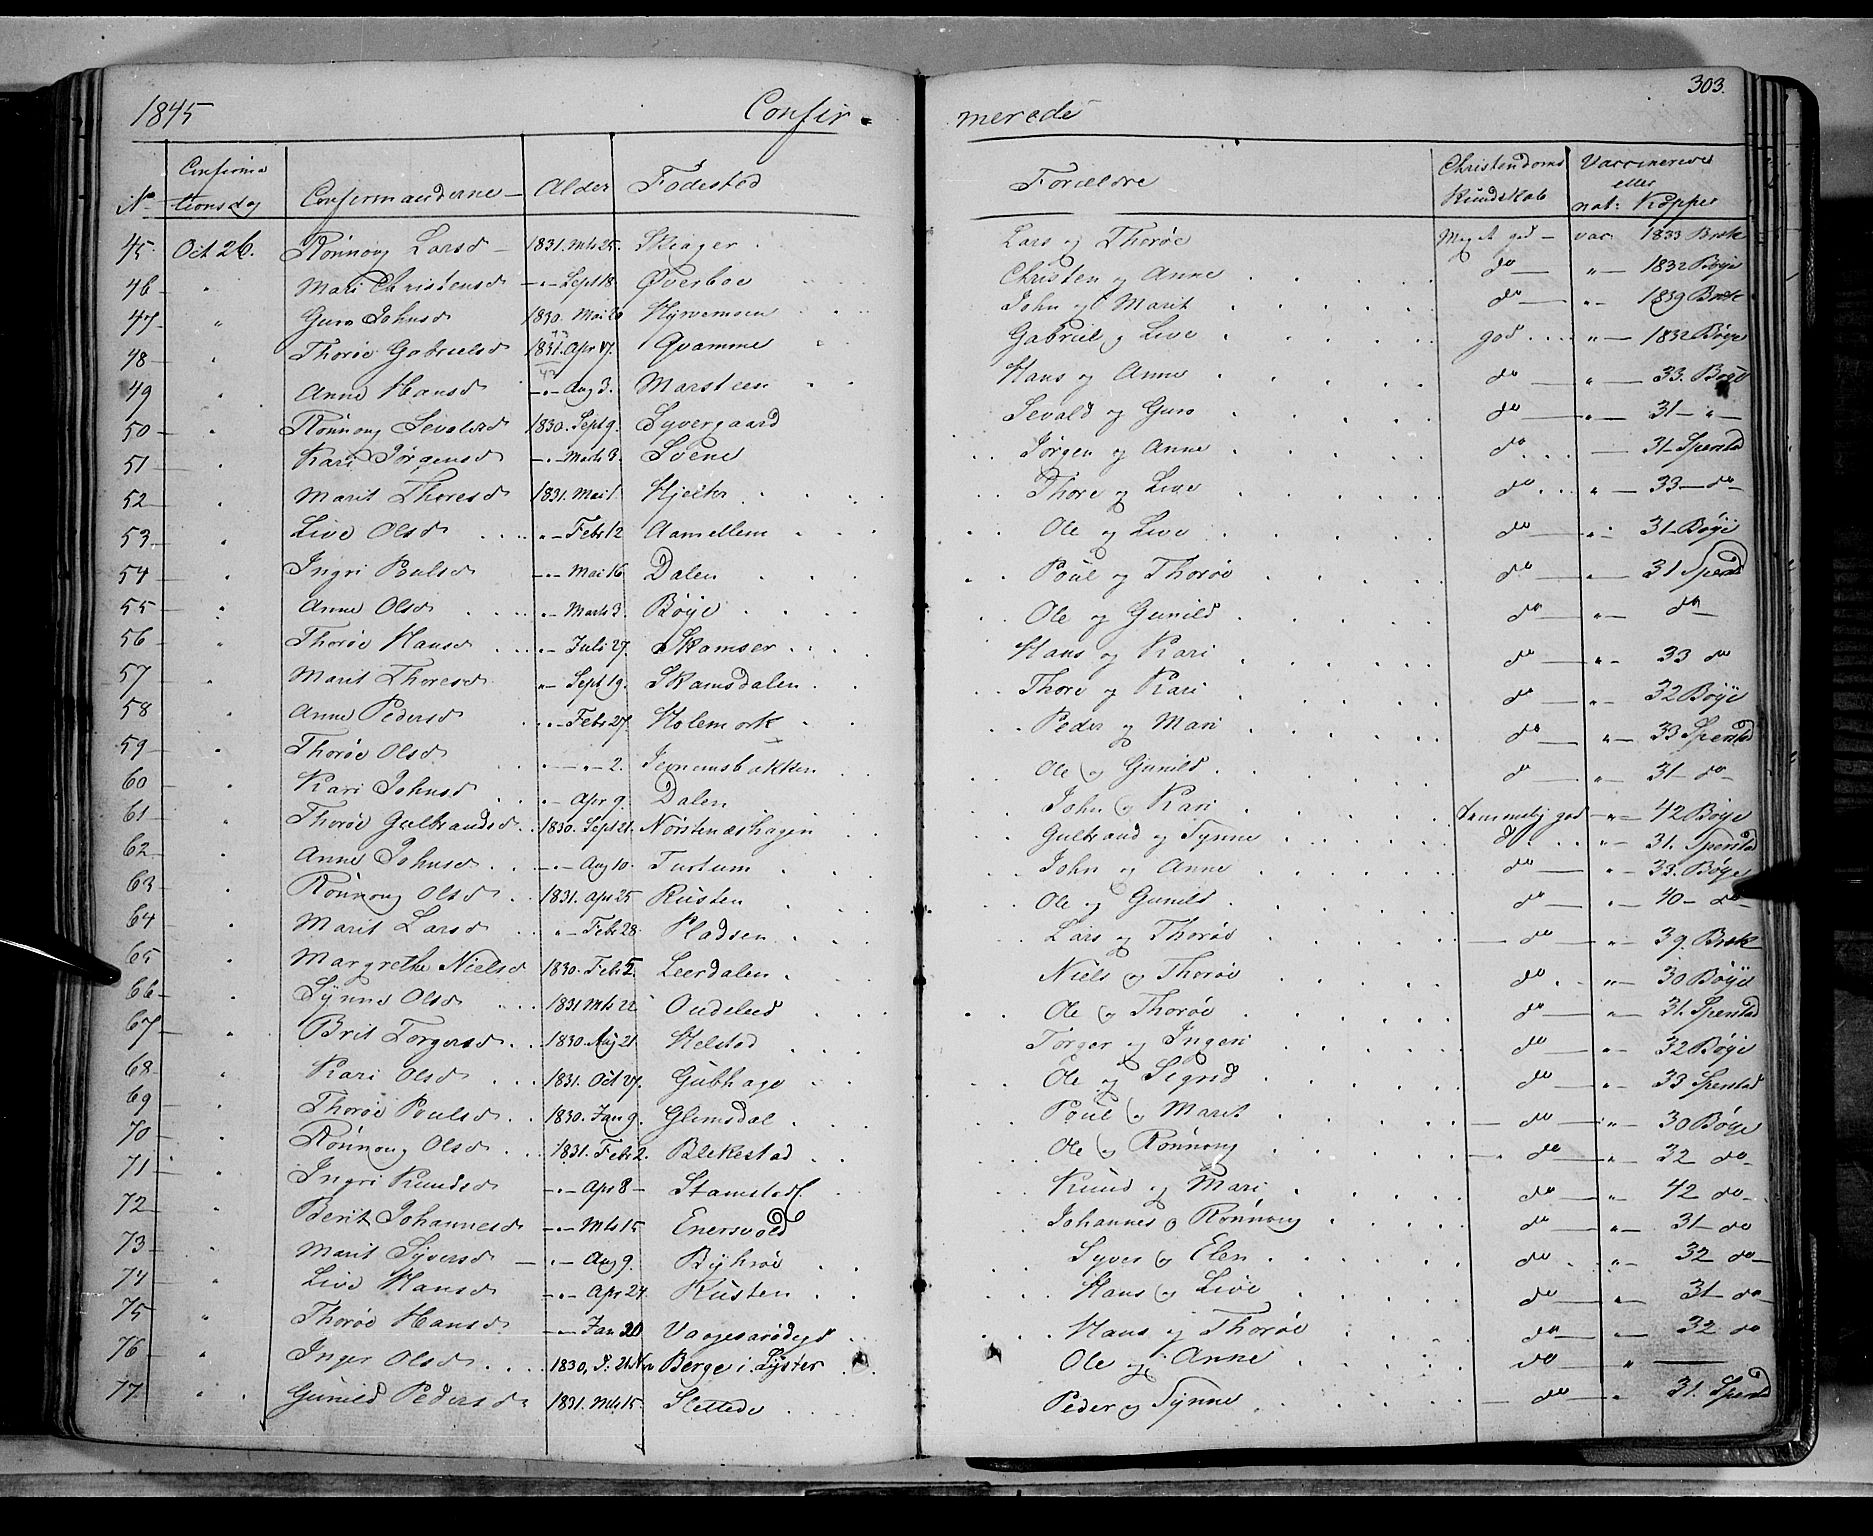 303.
1845 Confir- merede
No Confirmationsdag Confirmanderne Alder Fødested Forældre Christendoms Kundskab Vaccinerede eller nat: Kopper
45. Oct 26. Rønnoug Larsd 1831. Mts 25. Skiager Lars og Thorøe Meget god vac 1833 Brok
46 " Mari Christensd -"- Sept 18 Øverboe Christen og Anne do " 1832 Bøye
47 " Guro Johnsd 1830. Mai 20 Hyrvemoen John og Marit do " 1839 Brok
48 " Thorøe Gabrielsd 1831. Apr 17. Qvamme Gabriel og Live god " 1832 Bøye
49 " Anne Hansd -"- Aug 3. Marsteen Hans og Anne do " 33. Bøye
50 " Rønnoug Sevaldsd 1830. Sept 9. Syvergaard Sevald og Guro do " 31 "
51 " Kari Jørgensd -"- Marts 3. Svene Jørgen og Anne do 31 Spersta
52 " Marit Thoresd 1831. Mai 1. Hjeltr Thore og Live do " 33 do
53 " Live Olsd " Febr 12 Aamellem Ole og Live do " 31 Bøye
54 " Ingri Pulsd -"- Mai 16 Dalen Poul og Thorøe do " 31 Spersta
55 " Anne Olsd " Marts 3. Bøye Ole og Gunild do " do
56 " Thorøe Hansd " Juli 27. Skamser Hans og Kari do " 33 do
57 " Marit Thoresd " Sept 19. Skamsdalen Thore og Kari do " 32 Bøye
58 " Anne Pedersd " Febr 27. Holemork Peder og Mari do " 33 Spersta
59 " Thorøe Olsd " 2. Jevnemsbakken Ole og Gunild do " 31 do
60 " Kari Johnsd " Apr 9. Dalen John og Kari temmelig god " 42 Bøye
61 " Thorøe Gulbrandsd 1830. Sept 21. Norstenæshagen Gulbrand og Synne do " 31. Spersta
62 " Anne Johnsd -"- Aug 10. Turtum John og Anne do " 33. Bøye
63 " Rønnoug Olsd 1831. Apr 25 Rusten Ole og Gunild do " 40 do
64 " Marit Larsd " Febr 28. Pladsen Lars og Thorøe do " 39. Brok
65 " Margrethe Nielsd 1830. Feb 5. Leerdalen Niels og Thorøe do " 30 Bøye
66 " Synne Olsd 1831 Mts 22 Oudelied Ole og Thorøe do " 31. Spersta
67 " Brit Torgersd 1830. Aug 21. Helstad Torger og Ingeri do " 32 Bøye
68 " Kari Olsd 1831. Oct 27. Gubhage Ole og Sigrid do " 33 Spersta
69 " Thorøe Poulsd 1830. Jan 9. Glimsdal Poul og Marit do " 30 Bøye
70 " Rønnoug Olsd 1831. Febr 2. Blekestad Ole og Rønnoug do " 32 do
71 " Ingri Knudsd -"- Apr 8 Stamsted Knud og Mari do " 42 do
72 " Berit Johannesd -"- Mts 15 Enersvold Johannes og Rønnoug do " 31 do
73 " Marit Syversd " Aug 9. Byhrøe Syver og Elen do " 32 do
74 " Live Hansd " Apr 24. Rusten Hans og Live do " 31 do
75 " Thorøe Hansd " Jan 20 Hans og Thorøe do " 32 do
76 " Inger Olsd 1830, Berge i Lyster Ole og Anne do "
77 " Gunild Pedersd 1831. Mts 15. Slettede Peder og Synne do " 31. Spersta